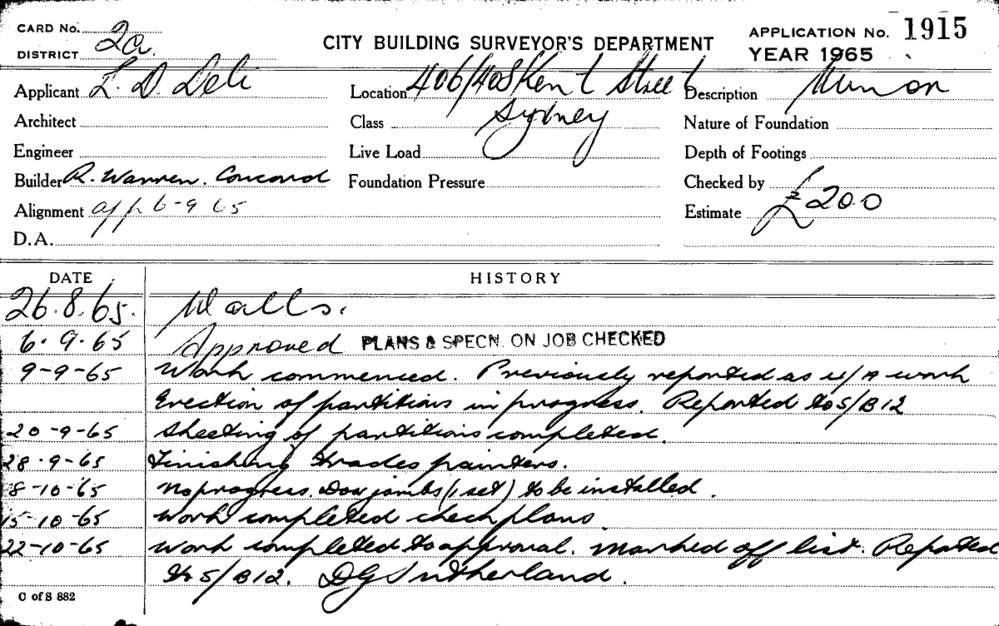 CARD No.
DISTRICT 2a.
CITY BUILDING SURVEYOR'S DEPARTMENT
APPLICATION No. 1915
YEAR 1965
Applicant L. D. Deli
Location 406/408 Kent Street
Description Minor
Architect
Class Sydney
Nature of Foundation
Engineer
Live Load
Depth of Footings
Builder R. Warren. Concord
Foundation Pressure
Checked by
Alignment app 6-9 65
Estimate £200
D.A.
DATE HISTORY
26.8.65. Walls.
6.9.65 Approved PLANS & SPECN. ON JOB CHECKED
9-9-65 Work commenced. Previously reported as u/A work
Erection of partitions in progress. Reported to S/B12
20-9-65 Sheeting of partitions completed.
28.9-65 Finishing trades painters.
8-10-65 No progress. Door jambs (1 set) to be installed.
15-10-65 Work completed check plans.
22-10-65 Work completed to approval. Marked off list. Reported
to S/B12. DG Sutherland.
C of S 882